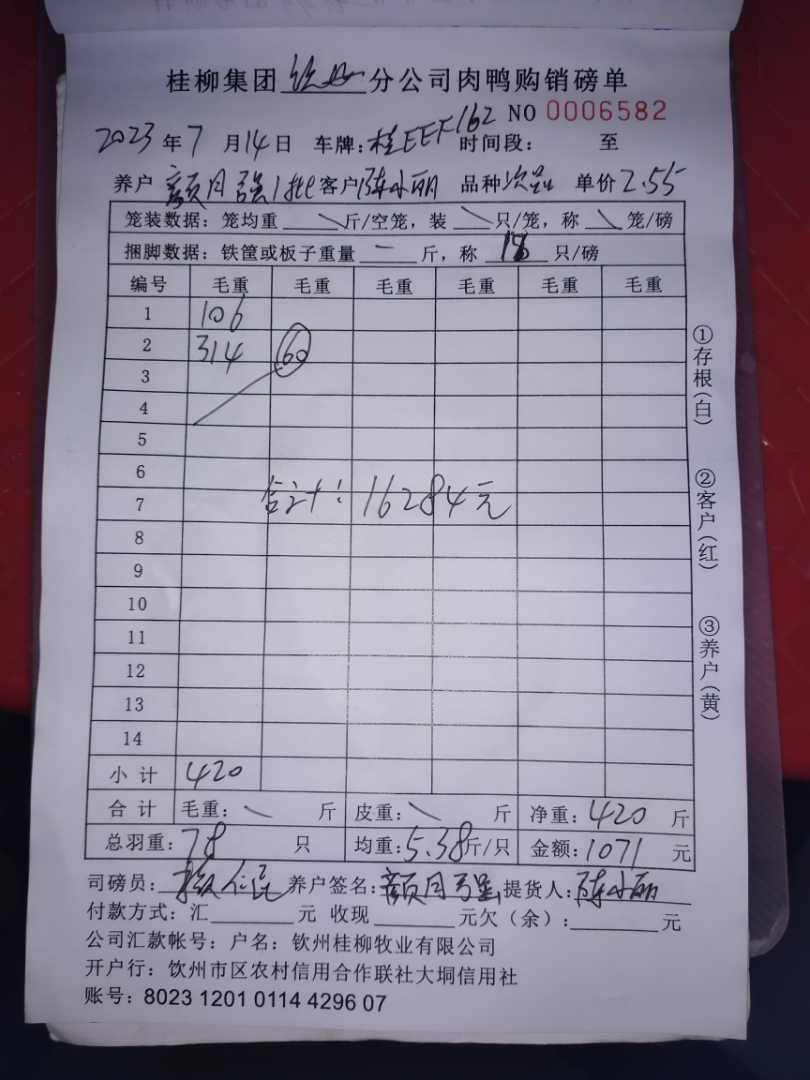 桂柳集团钦州分公司肉鸭购销磅单
NO 0006582
2023年7月14日 车牌:桂EEF162 时间段: 至
养户 颜月强1批 客户 陈小丽 品种 次品 单价 2.55
笼装数据: 笼均重 斤/空笼, 装 只/笼, 称 笼/磅
捆脚数据: 铁筐或板子重量 一 斤, 称 18 只/磅
编号 毛重 毛重 毛重 毛重 毛重 毛重
1 106
2 314 60
3
4
5
6
合计: 16284元
7
8
9
10
11
12
13
14
小计 420
合计 毛重: 斤 皮重: 斤 净重: 420 斤
总羽重: 78 只 均重: 5.38斤/只 金额: 1071 元
司磅员: 养户签名: 颜月强 提货人: 陈小丽
付款方式: 汇 元 收现 元欠(余): 元
公司汇款帐号: 户名: 钦州桂柳牧业有限公司
开户行: 饮州市区农村信用合作联社大垌信用社
账号: 8023 1201 0114 4296 07
①存根(白)
②客户(红)
③养户(黄)